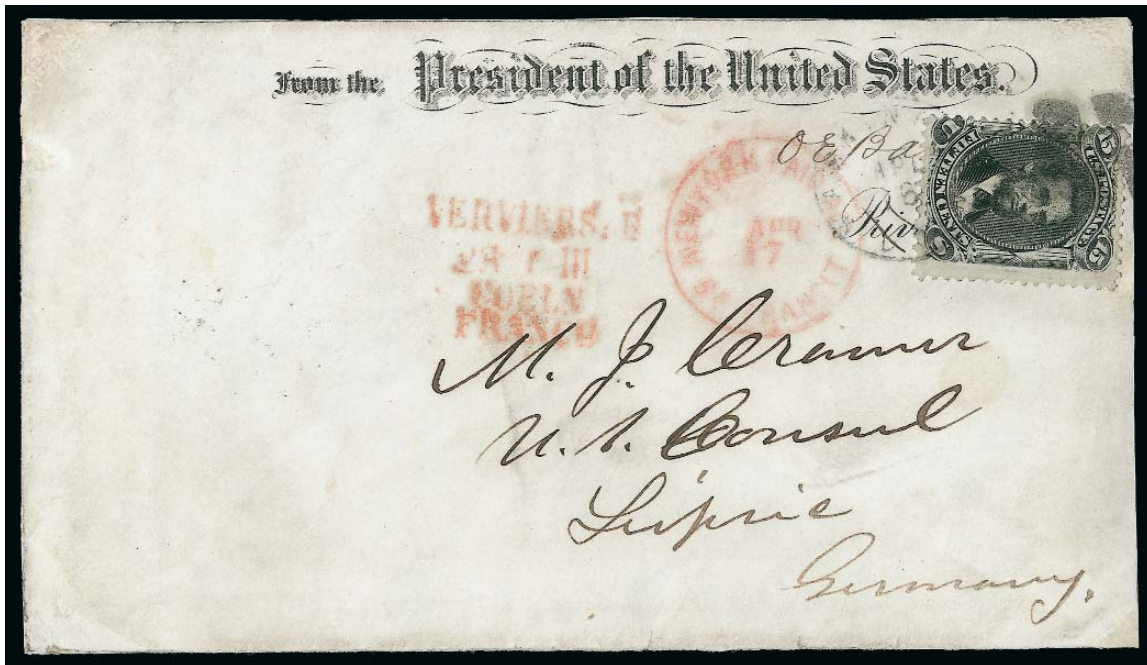 From the President of the United States.
O E Ba
Priv
VERVIERS,
III
COELN
FRANCO
NEW YORK PAID ALL
APR
17
BR. TRANSIT
15
15
U. S. POSTAGE
M. J. Cramer
U. S. Consul
Leipsic
Germany.